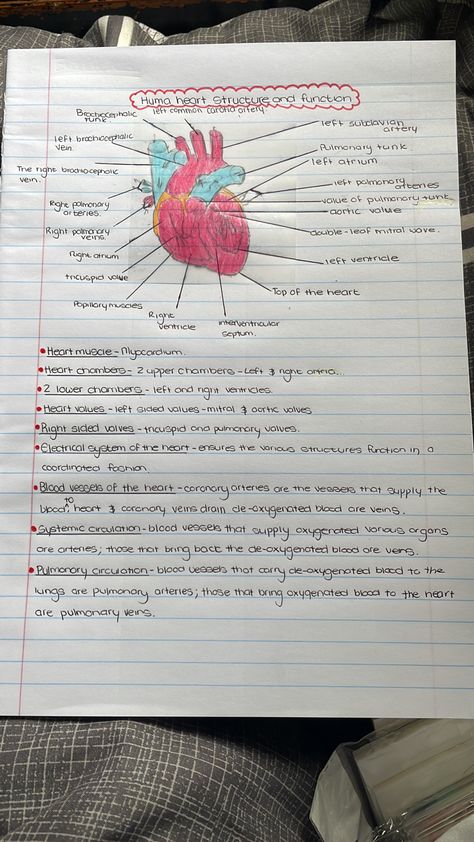 Huma heart structure and function
left common carotid artery.
Brachiocephalic
tunk.
left subclavian
artery
left brachiocephalic
vein.
Pulmonary tunk.
left atrium
The right brachiocephalic
vein.
left pulmonary
arteries
Right pulmonary
arteries.
value of pulmonary tunk
aortic value
Right pulmonary
veins.
double-leaf mitral wave.
Right atrium
left ventricle
tricuspid valve
Top of the heart
Papillary muscles
Right
ventricle
interventricular
septum.
• Heart muscle - Myocardium.
• Heart chambers - 2 upper chambers - Left & right artria.
• 2 lower chambers - left and right ventricles.
• Heart valves - left sided valves - mitral & aortic valves
• Right sided valves - tricuspid and pulmonary valves.
• Electrical system of the heart - ensures the various structures function in a
coordinated fashion.
• Blood vessels of the heart - coronary arteries are the vessels that supply the
blood, to heart & coronary veins drain de-oxygenated blood are veins.
• Systemic circulation - blood vessels that supply oxygenated various organs
are arteries; those that bring back the de-oxygenated blood are veins.
• Pulmonary circulation - blood vessels that carry de-oxygenated blood to the
lungs are pulmonary arteries; those that bring oxygenated blood to the heart
are pulmonary veins.